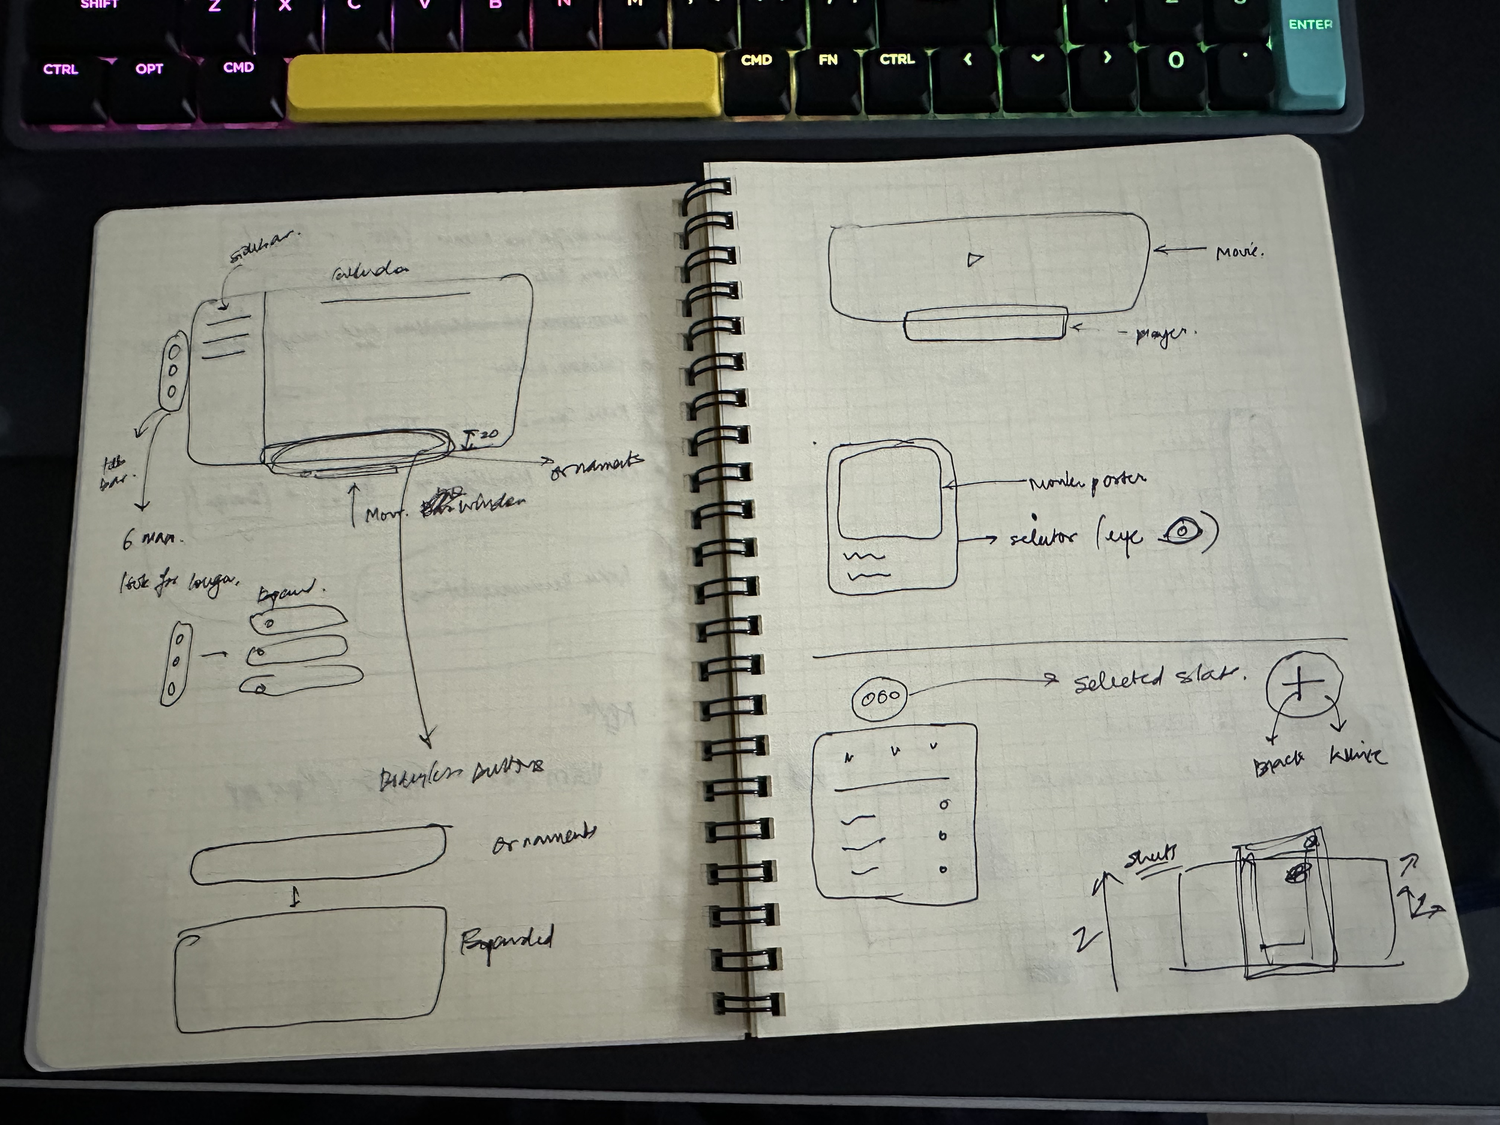 SHIFT
Z X C V B N M
ENTER
CTRL OPT CMD
CMD FN CTRL < > 0 .
sidebar.
window
20
ornaments
tab
bar.
Mov. window
6 max.
look for longer.
Expand.
Borderless buttons
ornaments
Expanded
Movie.
player.
movie poster
selector (eye )
selected state.
Black White
Z